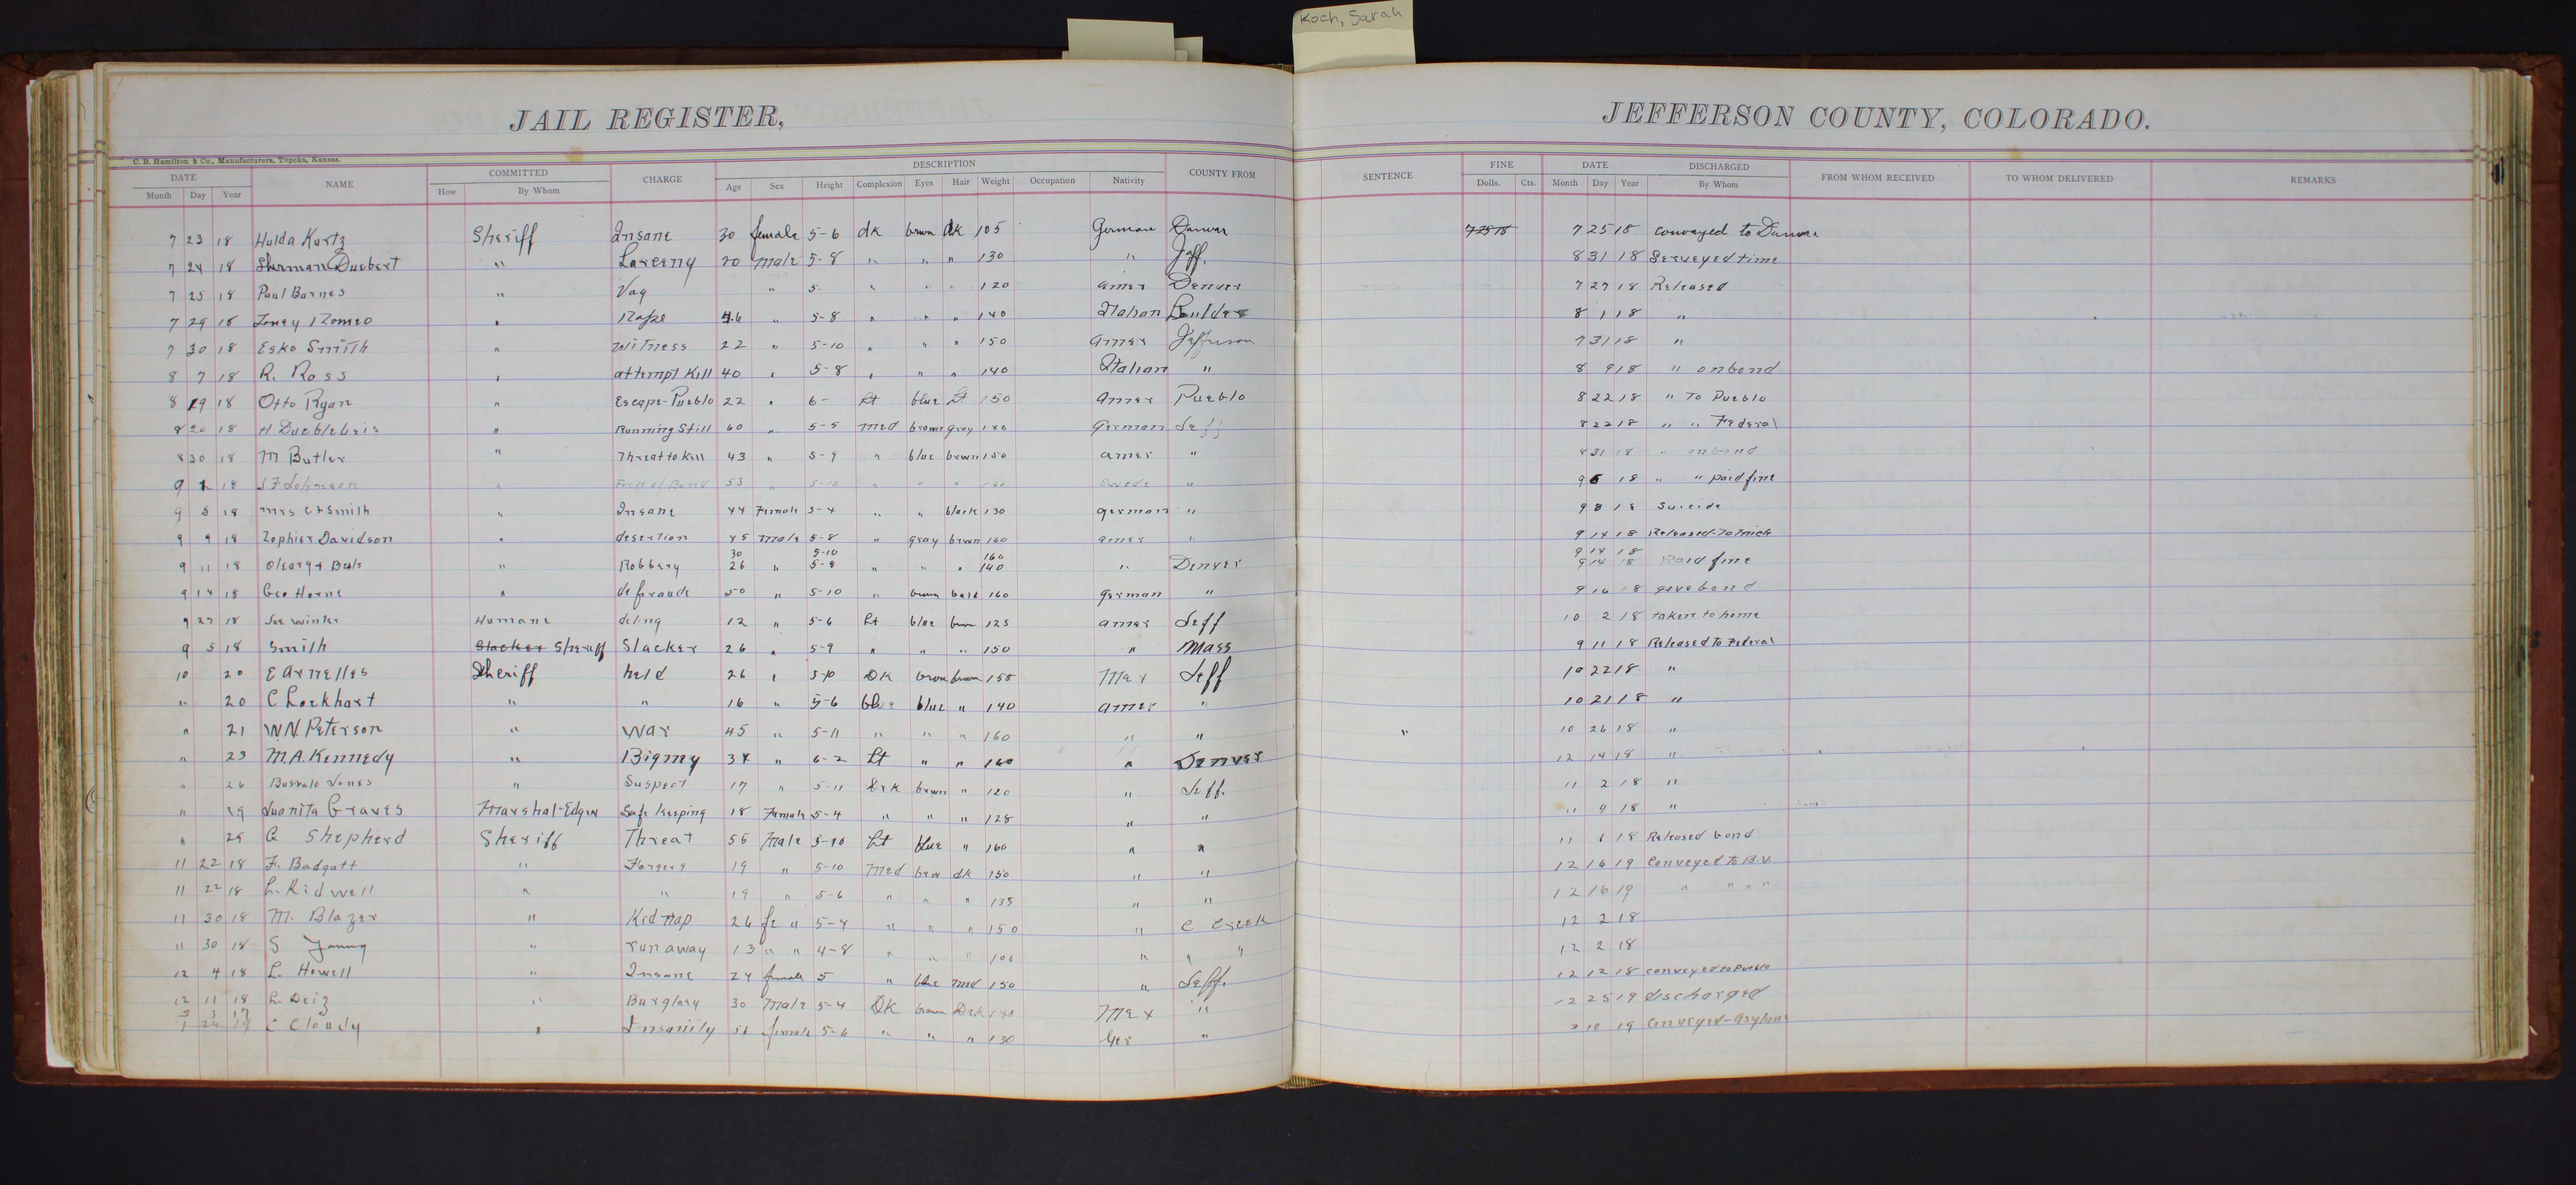 Koch, Sarah
JAIL REGISTER, JEFFERSON COUNTY, COLORADO.
C. B. Hamilton & Co., Manufacturers, Topeka, Kansas.
DATE NAME COMMITTED CHARGE DESCRIPTION COUNTY FROM SENTENCE FINE DATE DISCHARGED FROM WHOM RECEIVED TO WHOM DELIVERED REMARKS
Month Day Year How By Whom Age Sex Height Complexion Eyes Hair Weight Occupation Nativity Dolls. Cts. Month Day Year By Whom
7 23 18 Hulda Kurtz Sheriff Insane 30 female 5-6 dk brwn dk 105 German Denver 7 25 18 7 25 18 conveyed to Denver
7 24 18 Sherman Duebert " Larceny 20 male 5-8 " " " 130 " Jeff. 8 31 18 Serveyed time
7 25 18 Paul Barnes " Vag " 5- " " " 120 amer Denver 7 27 18 Released
7 29 18 Toney Romeo " Rape 46 " 5-8 " " " 140 Italian Boulder 8 1 18 "
7 30 18 Esko Smiith " witness 22 " 5-10 " " " 150 amer Jefferson 7 31 18 "
8 7 18 R. Ross " attempt Kill 40 " 5-8 " " " 140 Italian " 8 9 18 " on bond
8 19 18 Otto Ryan " Escape-Pueblo 22 " 6- Lt blue Lt 150 amer Pueblo 8 22 18 " To Pueblo
8 20 18 H " Running Still 60 " 5-5 med brown gray German Jeff 8 22 18 " " Federal
8 30 18 M Butler " Threat to Kill 43 " 5-9 " blue brwn 150 amer " 8 31 18 " on bond
9 1 18 J F Johnson " Bond 53 " 5-10 " " " 160 Swede " 9 6 18 " " paid fine
9 5 18 mrs C F Smith " Insane 44 Female 5-4 " " black 130 german " 9 8 18 Suicide
9 9 18 Zephier Davidson " desertion 45 male 5-8 " gray brwn 160 amer " 9 14 18 Released to
30 5-10 160 9 14 18
9 11 18 Oleary + " Robbery 26 " 5-8 " " " 140 " Denver 9 14 18 Paid fine
9 14 18 Geo Horne " defraude 50 " 5-10 " brwn bald 160 german " 9 16 18 gave bond
9 27 18 Joe Winter Humane delinq 12 " 5-6 Lt blue brwn 125 amer Jeff 10 2 18 taken to home
9 5 18 Smith Slacker Sheriff Slacker 26 " 5-9 " " " 150 " Mass 9 11 18 Released to Federal
10 20 E Arnelles Sheriff held 26 " 5-10 DK brown brwn 155 Mex Jeff 10 22 18 "
" 20 C Lockhart " " 16 " 5-6 blue blue " 140 amer " 10 21 18 "
" 21 W N. Peterson " War 45 " 5-11 " " " 160 " " " 10 26 18 "
" 23 M.A. Kennedy " Bigmy 34 " 6-2 Lt " " 160 " Denver 12 14 18 "
" 26 Jones " Suspect 17 " 5-11 Drk brwn " 120 " Jeff. 11 2 18 "
" 29 Juonita Graves Marshal-Edgew Safe Keeping 18 Female 5-4 " " " 128 " " 11 4 18 "
" 29 G Shepherd Sheriff Threat 55 Male 5-10 Lt blue " 160 " " 11 6 18 Released bond
11 22 18 F. Badgatt " Forgery 19 " 5-10 Med brw dk 150 " " 12 16 19 Conveyed to B.V.
11 22 18 L. Kidwell " " 19 " 5-6 " " " 135 " " 12 16 19 " " " "
11 30 18 M. Blazer " Kidnap 26 fe " 5-4 " " " 150 " C Creek 12 2 18
11 30 18 S Young " run away 13 " " 4-8 " " " 106 " " " 12 2 18
12 4 18 L. Howell " Insane 24 female 5 " blue med 150 " Jeff. 12 12 18 conveyed to Pueblo
12 11 18 L. Deiz " Burglary 30 Male 5-4 DK brown Drk 140 Mex " 12 25 19 discharged
3 3 17
1 24 19 C Cloudy " Insanity 56 female 5-6 " " " 130 Ger " 10 19 conveyed-asylum